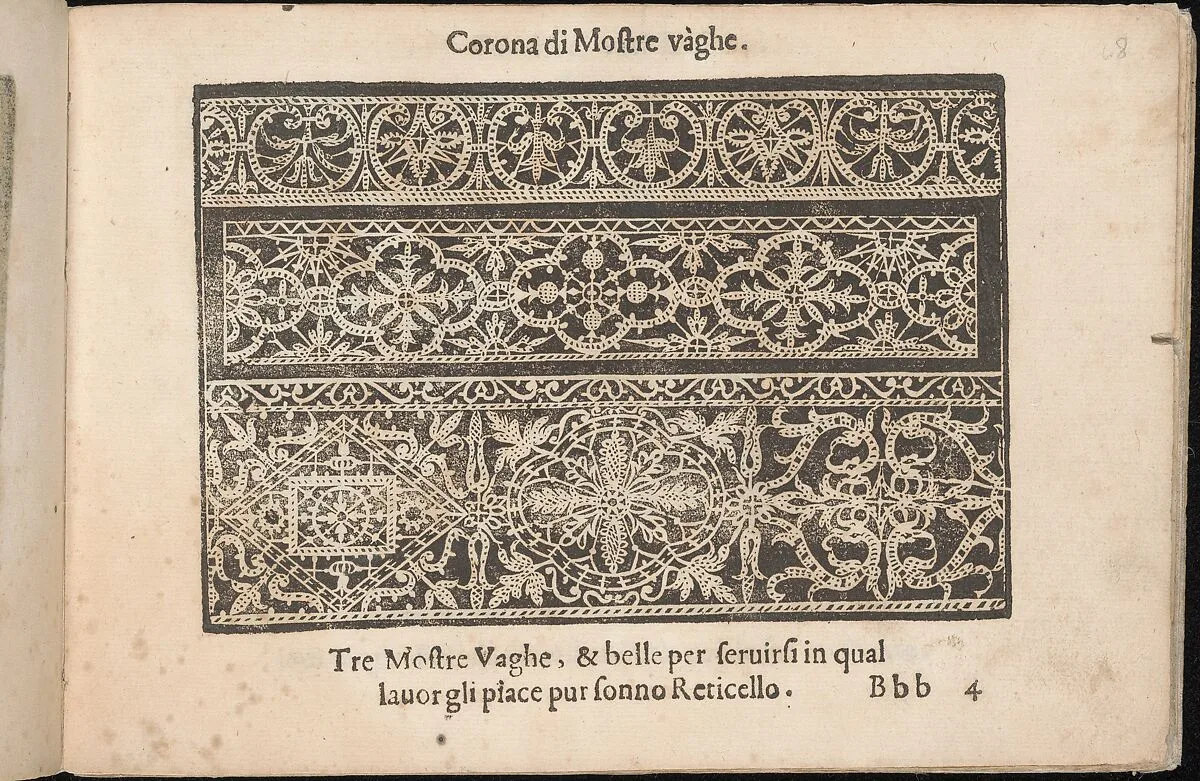 Corona di Moſtre vàghe.
68
Tre Moſtre Vaghe, & belle per ſeruirſi in qual
lauor gli piace pur ſonno Reticello. Bbb 4